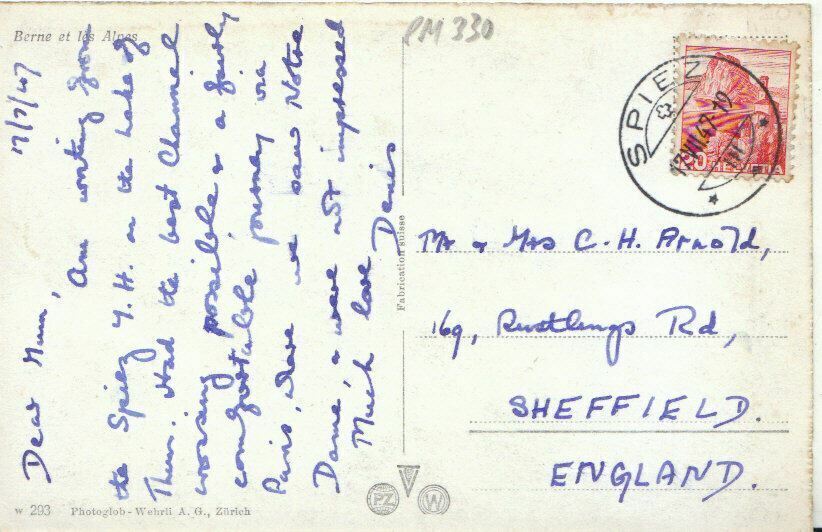 Berne et les Alpes
PM 330
17/7/47
Dear Mum,
Am writing from
the Spiez Y.H. on the Lake of
Thun. Had the best Channel
crossing possible & a fairly
comfortable journey via
Paris, where we saw Notre
Dame, & were not impressed
Much love Denis
Fabrication suisse
SPIEZ
17.VII.47-19
HELVETIA
Mr & Mrs C. H. Arnold,
169, Rustlings Rd,
SHEFFIELD.
ENGLAND.
PZ
W
W 293 Photoglob-Wehrli A. G., Zürich